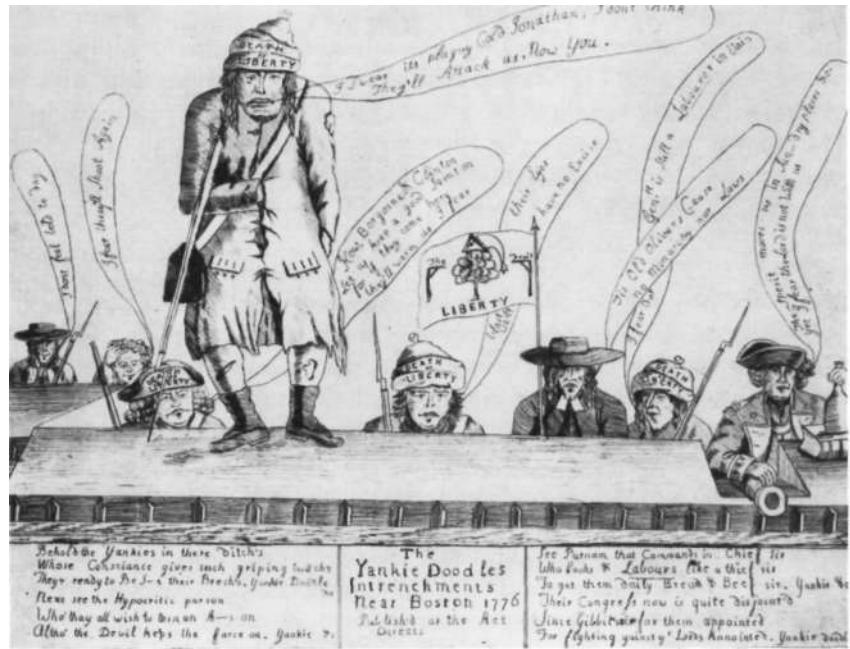 I swear its plaguy Cold Jonathan, I don't think
They'll Attack us, Now You.
DEATH OR
LIBERTY
I fear they'll Shoot Again
I none feel bold to Day
Now Burgoine & Clinton
Let us have a good Scituation
for if they come
they'll warm us I fear
their Eyes
have no Excise
Genn is still a Labourer in Vain
Tis Old Olivers Cause
no Monarchy nor Laws
Spirit moves us in dry places
I fear the Lord is not with us
The
Devil
LIBERTY
DEATH OR
LIBERTY
DEATH OR
LIBERTY
DEATH OR
LIBERTY
Behold the Yankies in there ditch's
Whose Conscience gives such griping twitches
They'r ready to Be S—t their Brech's, Yankie Doodle
Next see the Hypocritic parson
Who thay all wish to turn an A—s on
Altho' the Devil keps the farce on, Yankie &c.
The
Yankie Doodles
Intrenchments
Near Boston 1776
Publish'd as the Act
Directs
See Putnam that Commands in Chief sir
Who looks & Labours like a thief sir
To get them daily Bread & Beef sir, Yankie &c
Their Congress now is quite disjointed
Since Gibbits are for them appointed
For fighting gainst ye Lords Annointed, Yankie doodl